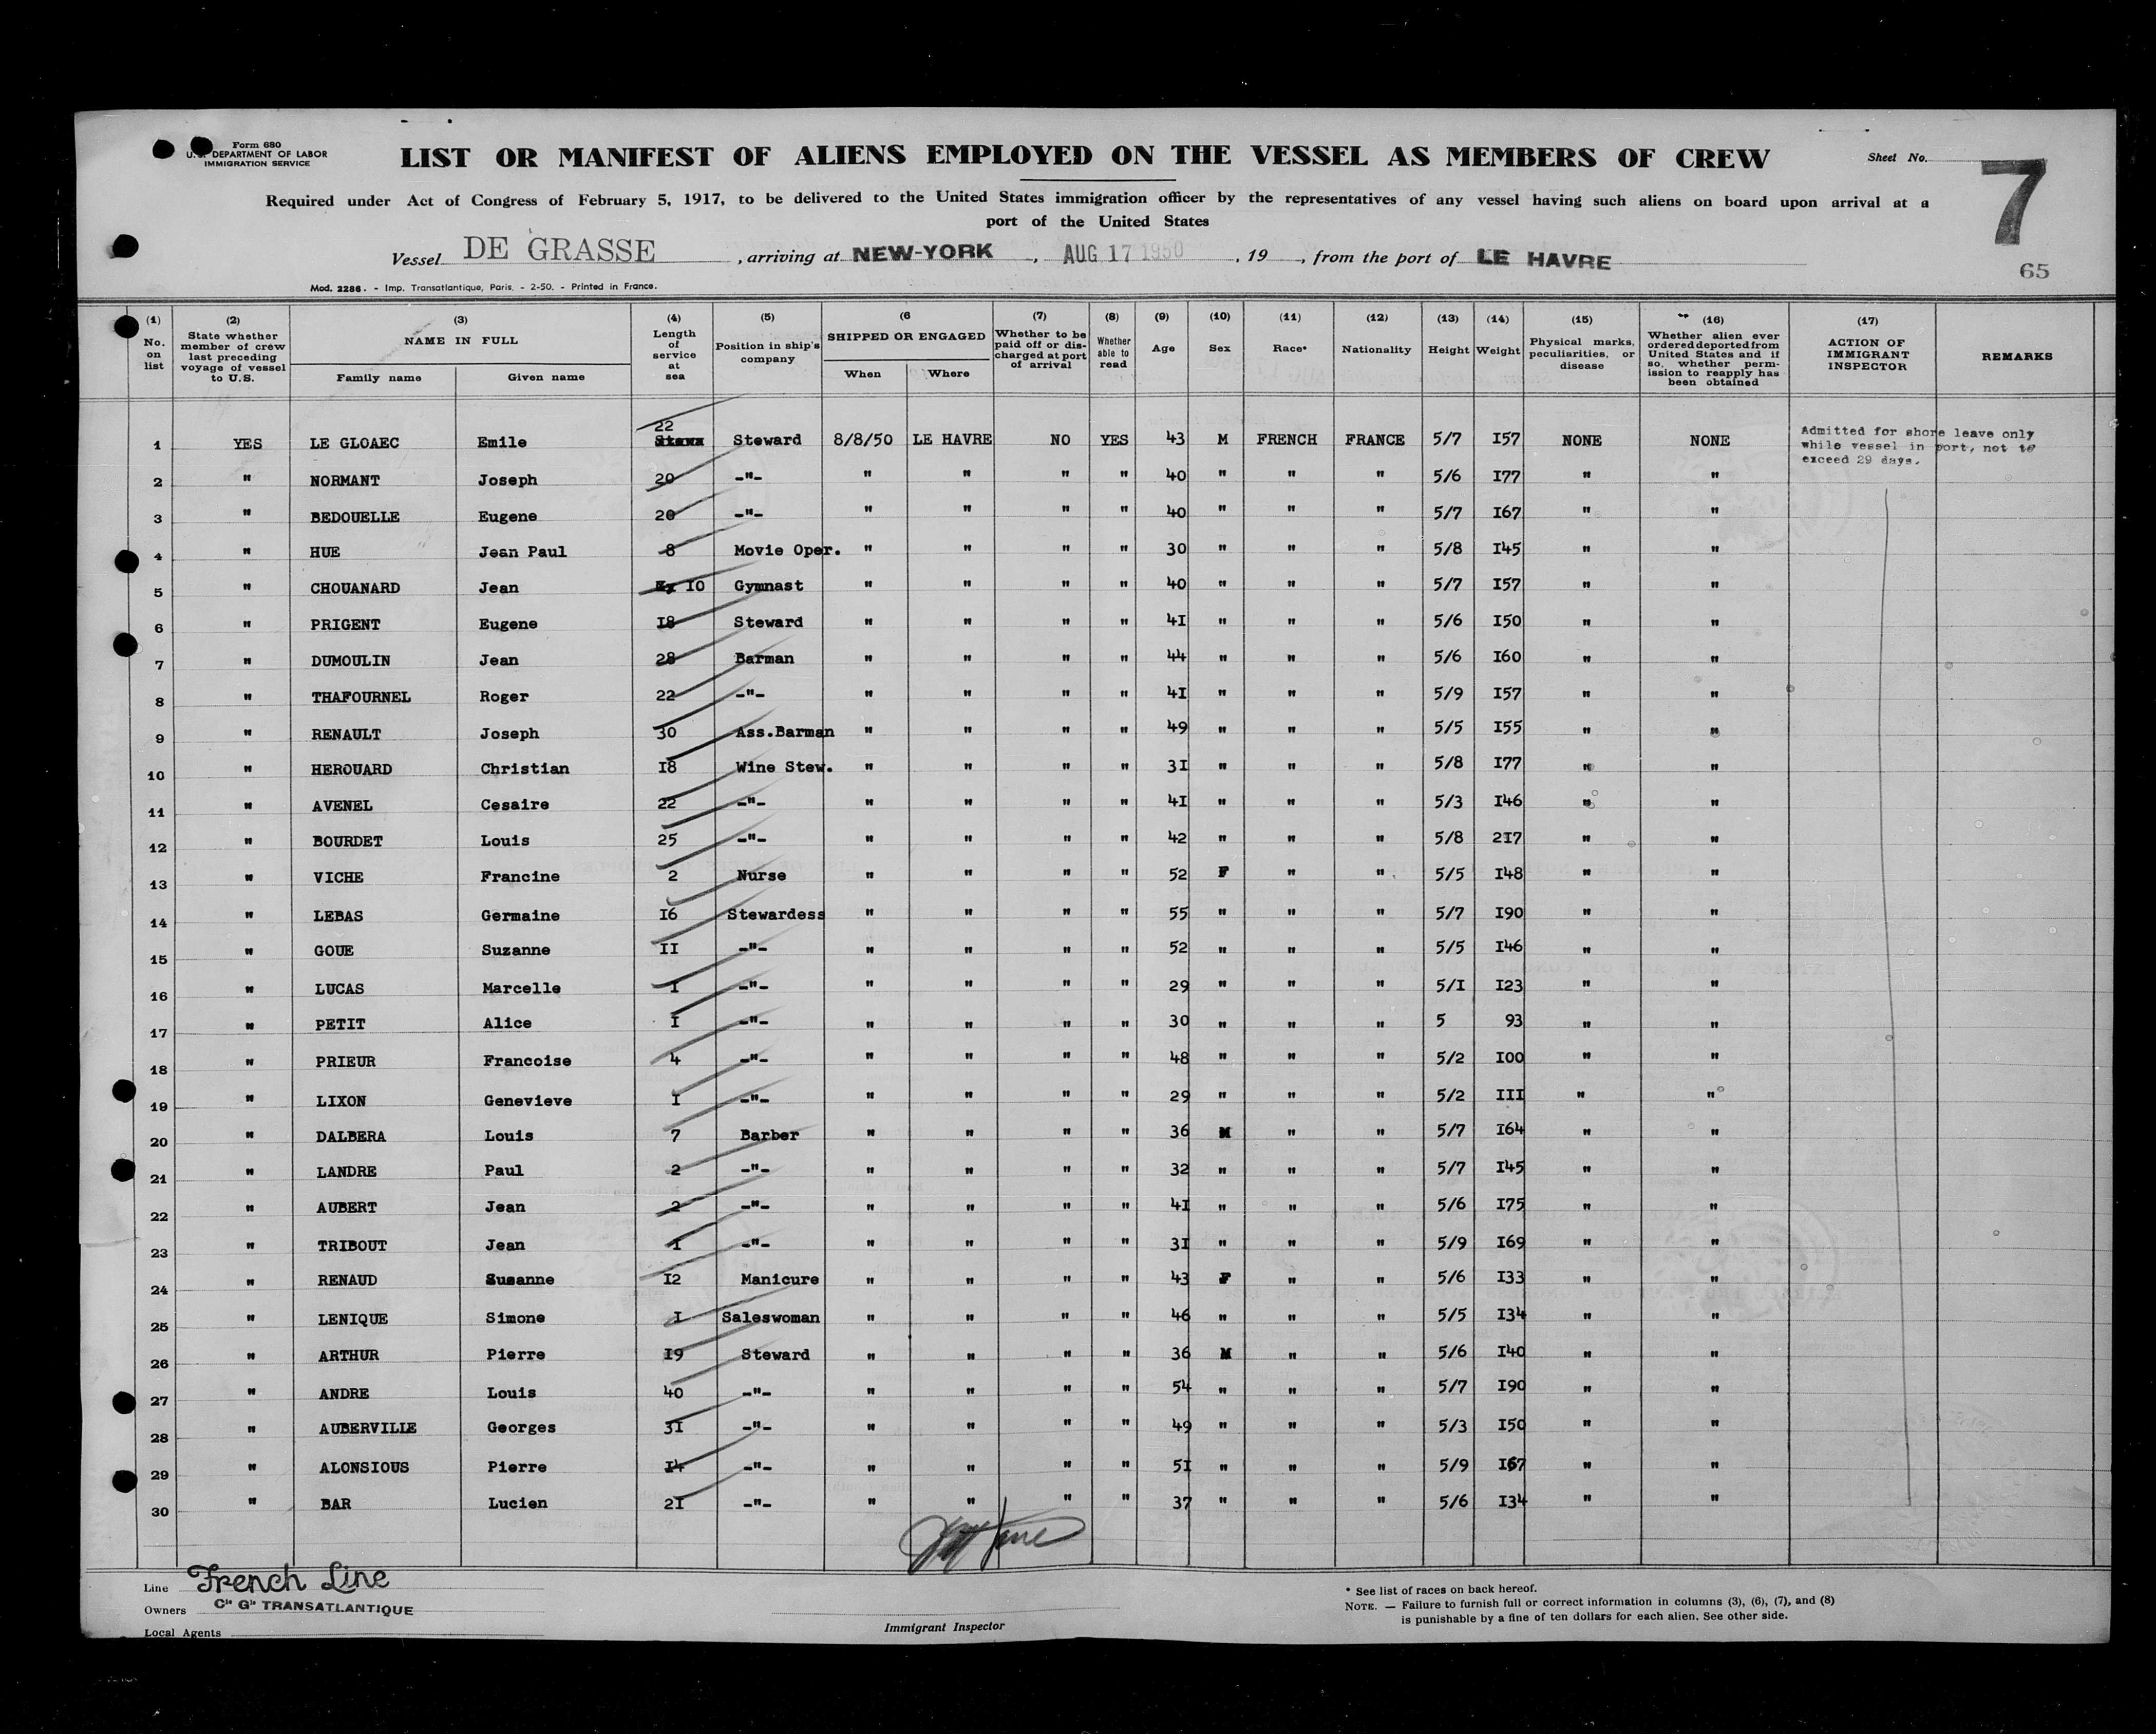 Form 680
U.S. DEPARTMENT OF LABOR
IMMIGRATION SERVICE
LIST OR MANIFEST OF ALIENS EMPLOYED ON THE VESSEL AS MEMBERS OF CREW
Sheet No. 7
Required under Act of Congress of February 5, 1917, to be delivered to the United States immigration officer by the representatives of any vessel having such aliens on board upon arrival at a
port of the United States
Vessel DE GRASSE, arriving at NEW-YORK, AUG 17 1950, 19 , from the port of LE HAVRE
65
Mod. 2286. - Imp. Transatlantique, Paris. - 2-50. - Printed in France.
(1) No. on list (2) State whether member of crew last preceding voyage of vessel to U.S. (3) NAME IN FULL Family name Given name (4) Length of service at sea (5) Position in ship's company (6 SHIPPED OR ENGAGED When Where (7) Whether to be paid off or discharged at port of arrival (8) Whether able to read (9) Age (10) Sex (11) Race* (12) Nationality (13) Height (14) Weight (15) Physical marks, peculiarities, or disease (16) Whether alien ever ordered deported from United States and if so, whether permission to reapply has been obtained (17) ACTION OF IMMIGRANT INSPECTOR REMARKS
1 YES LE GLOAEC Emile 22 Steward 8/8/50 LE HAVRE NO YES 43 M FRENCH FRANCE 5/7 I57 NONE NONE Admitted for shore leave only while vessel in port, not to exceed 29 days.
2 " NORMANT Joseph 20 -"- " " " " 40 " " " 5/6 I77 " "
3 " BEDOUELLE Eugene 20 -"- " " " " 40 " " " 5/7 I67 " "
4 " HUE Jean Paul 8 Movie Oper. " " " " 30 " " " 5/8 I45 " "
5 " CHOUANARD Jean I0 Gymnast " " " " 40 " " " 5/7 I57 " "
6 " PRIGENT Eugene I8 Steward " " " " 4I " " " 5/6 I50 " "
7 " DUMOULIN Jean 28 Barman " " " " 44 " " " 5/6 I60 " "
8 " THAFOURNEL Roger 22 -"- " " " " 4I " " " 5/9 I57 " "
9 " RENAULT Joseph 30 Ass.Barman " " " " 49 " " " 5/5 I55 " "
10 " HEROUARD Christian I8 Wine Stew. " " " " 3I " " " 5/8 I77 " "
11 " AVENEL Cesaire 22 -"- " " " " 4I " " " 5/3 I46 " "
12 " BOURDET Louis 25 -"- " " " " 42 " " " 5/8 2I7 " "
13 " VICHE Francine 2 Nurse " " " " 52 F " " 5/5 I48 " "
14 " LEBAS Germaine I6 Stewardess " " " " 55 " " " 5/7 I90 " "
15 " GOUE Suzanne II -"- " " " " 52 " " " 5/5 I46 " "
16 " LUCAS Marcelle I -"- " " " " 29 " " " 5/I I23 " "
17 " PETIT Alice I -"- " " " " 30 " " " 5 93 " "
18 " PRIEUR Francoise 4 -"- " " " " 48 " " " 5/2 I00 " "
19 " LIXON Genevieve I -"- " " " " 29 " " " 5/2 III " "
20 " DALBERA Louis 7 Barber " " " " 36 M " " 5/7 I64 " "
21 " LANDRE Paul 2 -"- " " " " 32 " " " 5/7 I45 " "
22 " AUBERT Jean 2 -"- " " " " 4I " " " 5/6 I75 " "
23 " TRIBOUT Jean I -"- " " " " 3I " " " 5/9 I69 " "
24 " RENAUD Susanne I2 Manicure " " " " 43 F " " 5/6 I33 " "
25 " LENIQUE Simone I Saleswoman " " " " 46 " " " 5/5 I34 " "
26 " ARTHUR Pierre I9 Steward " " " " 36 M " " 5/6 I40 " "
27 " ANDRE Louis 40 -"- " " " " 54 " " " 5/7 I90 " "
28 " AUBERVILLE Georges 3I -"- " " " " 49 " " " 5/3 I50 " "
29 " ALONSIOUS Pierre I4 -"- " " " " 5I " " " 5/9 I67 " "
30 " BAR Lucien 2I -"- " " " " 37 " " " 5/6 I34 " "
Line French Line
Owners Cie Gle TRANSATLANTIQUE
Local Agents
Immigrant Inspector
* See list of races on back hereof.
NOTE. — Failure to furnish full or correct information in columns (3), (6), (7), and (8)
is punishable by a fine of ten dollars for each alien. See other side.